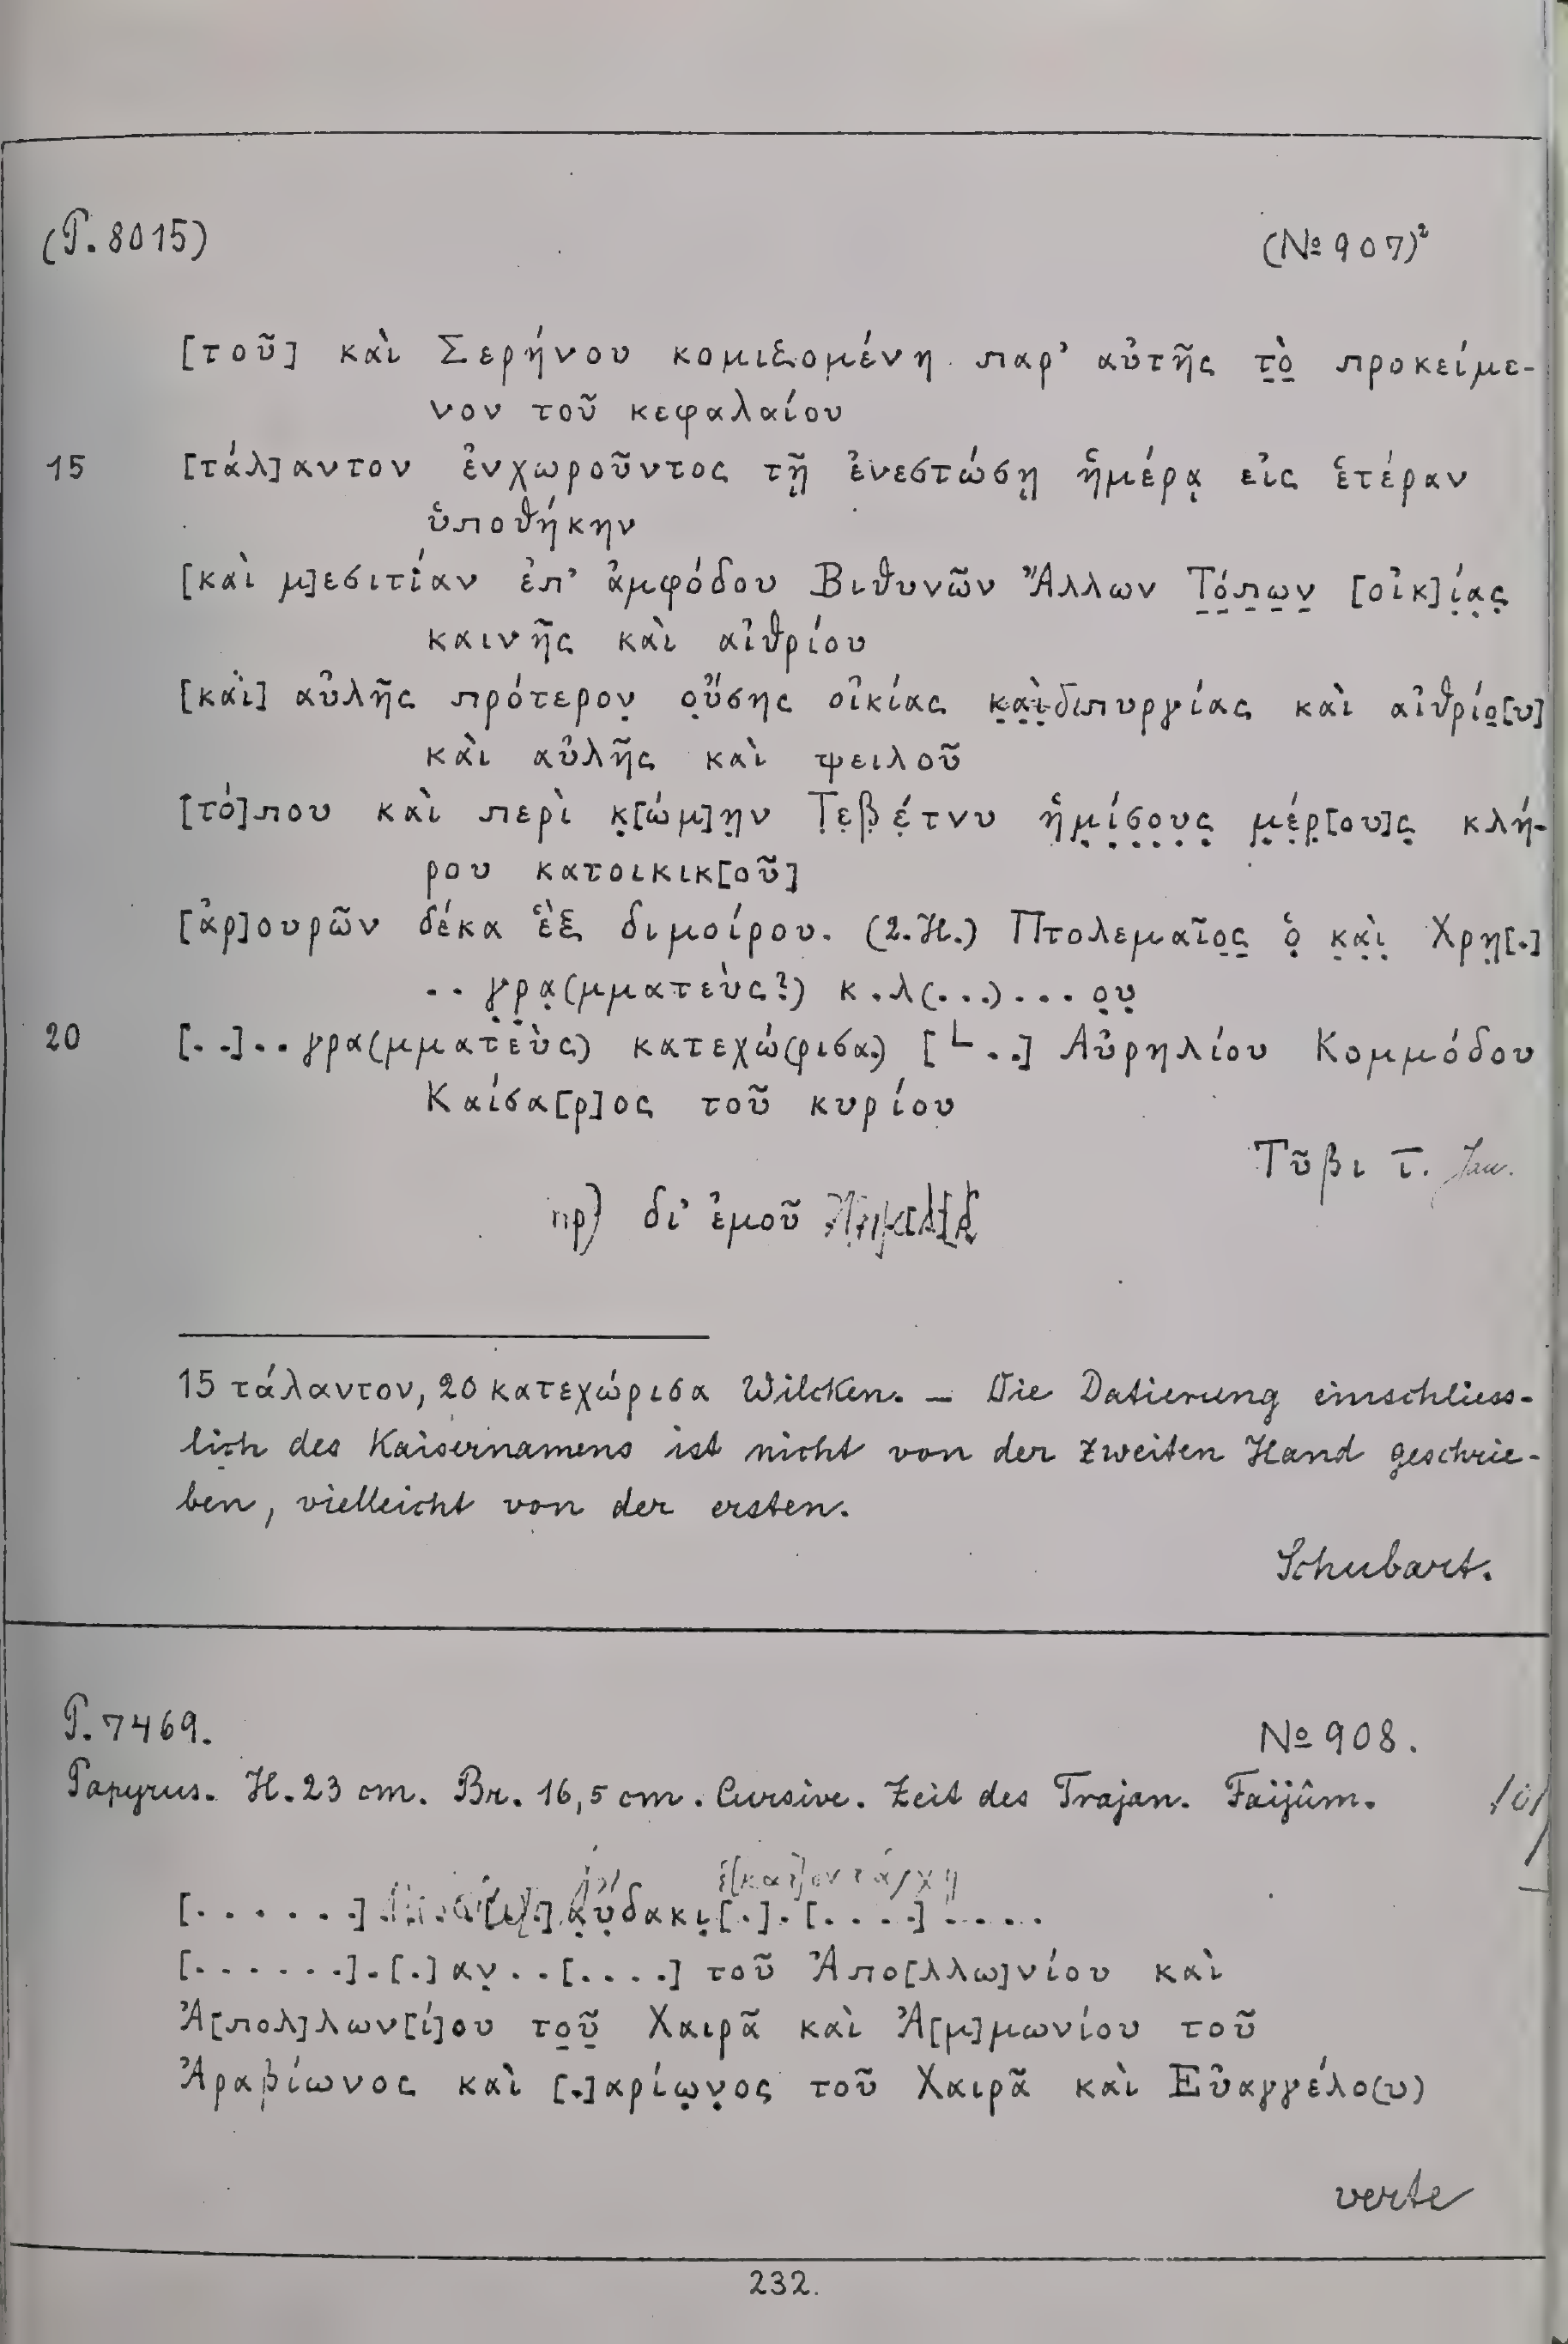 (P. 8015) (№ 907)²
[τοῦ] καὶ Σερήνου κομιζομένη παρ' αὐτῆς τ̣ὸ̣ προκείμε-
νον τοῦ κεφαλαίου
15 [τάλ]αντον ἐνχωροῦντος τῇ ἐνεστώσῃ ἡμέρᾳ εἰς ἑτέραν
ὑποθήκην
[καὶ μ]εσιτίαν ἐπ' ἀμφόδου Βιθυνῶν Ἄλλων Τ̣ό̣π̣ω̣ν̣ [οἰκ]ί̣α̣ς̣
καινῆς καὶ αἰθρίου
[καὶ] αὐλῆς πρότερον̣ ο̣ὔσης οἰκίας κ̣α̣ὶ̣ διπυργίας καὶ αἰθρίο̣[υ]
καὶ αὐλῆς καὶ ψειλοῦ
[τό]που καὶ περὶ κ̣[ώμ]η̣ν Τ̣ε̣β̣έ̣τνυ ἡμ̣ί̣σ̣ο̣υ̣ς̣ μ̣έ̣ρ̣[ου]ς̣ κλή-
ρου κατοικικ[οῦ]
[ἀρ]ουρῶν δέκα ἓξ διμοίρου. (2. H.) Πτολεμαῖο̣ς̣ ὁ̣ κ̣α̣ὶ̣ Χρη̣[.]
.. γ̣ρ̣α̣(μματεὺς?) κ.λ(...)... ο̣υ̣
20 [..]..γρα(μματεὺς) κατεχώ(ρισα) [└..] Αὐρηλίου Κομμόδου
Καίσα[ρ]ος τοῦ κυρίου
Τῦβι ι̅. Jan.
δι' ἐμοῦ
15 τάλαντον, 20 κατεχώρισα Wilcken. – Die Datierung einschliess-
lich des Kaisernamens ist nicht von der zweiten Hand geschrie-
ben, vielleicht von der ersten.
Schubart.
P. 7469. № 908.
Papyrus. H. 23 cm. Br. 16,5 cm. Cursive. Zeit des Trajan. Faijûm.
ἑ[κατ]οντάρχῃ
[......] α̣ὐ̣δακι̣[.].[....].....
[......].[.]αν̣..[....] τοῦ Ἀπο[λλω]νίου καὶ
Ἀ[πολ]λων[ί]ου το̣ῦ̣ Χαιρᾶ καὶ Ἀ[μ]μωνίου τοῦ
Ἀραβίωνος καὶ [.]αρίω̣ν̣ος τοῦ Χαιρᾶ καὶ Εὐαγγέλο(υ)
verte
232.